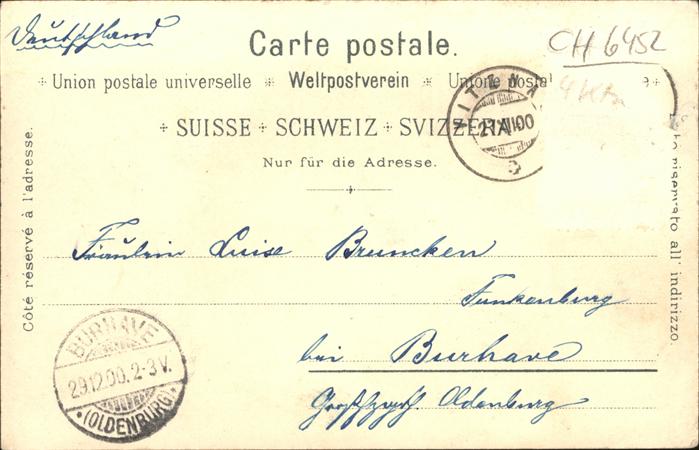 Deutschland
Carte postale.
CH 6452
Union postale universelle * Weltpostverein * Unione postal e
4
SUISSE + SCHWEIZ + SVIZZERA
27.XII.00
Nur für die Adresse.
Côté réservé à l'adresse.
riservato all' indirizzo.
Fräulein Luise Bruncken
Funkenburg
bei Burhave
Großherzogth. Oldenburg
BURHAVE
29.12.00. 2-3 V.
*(OLDENBURG)*